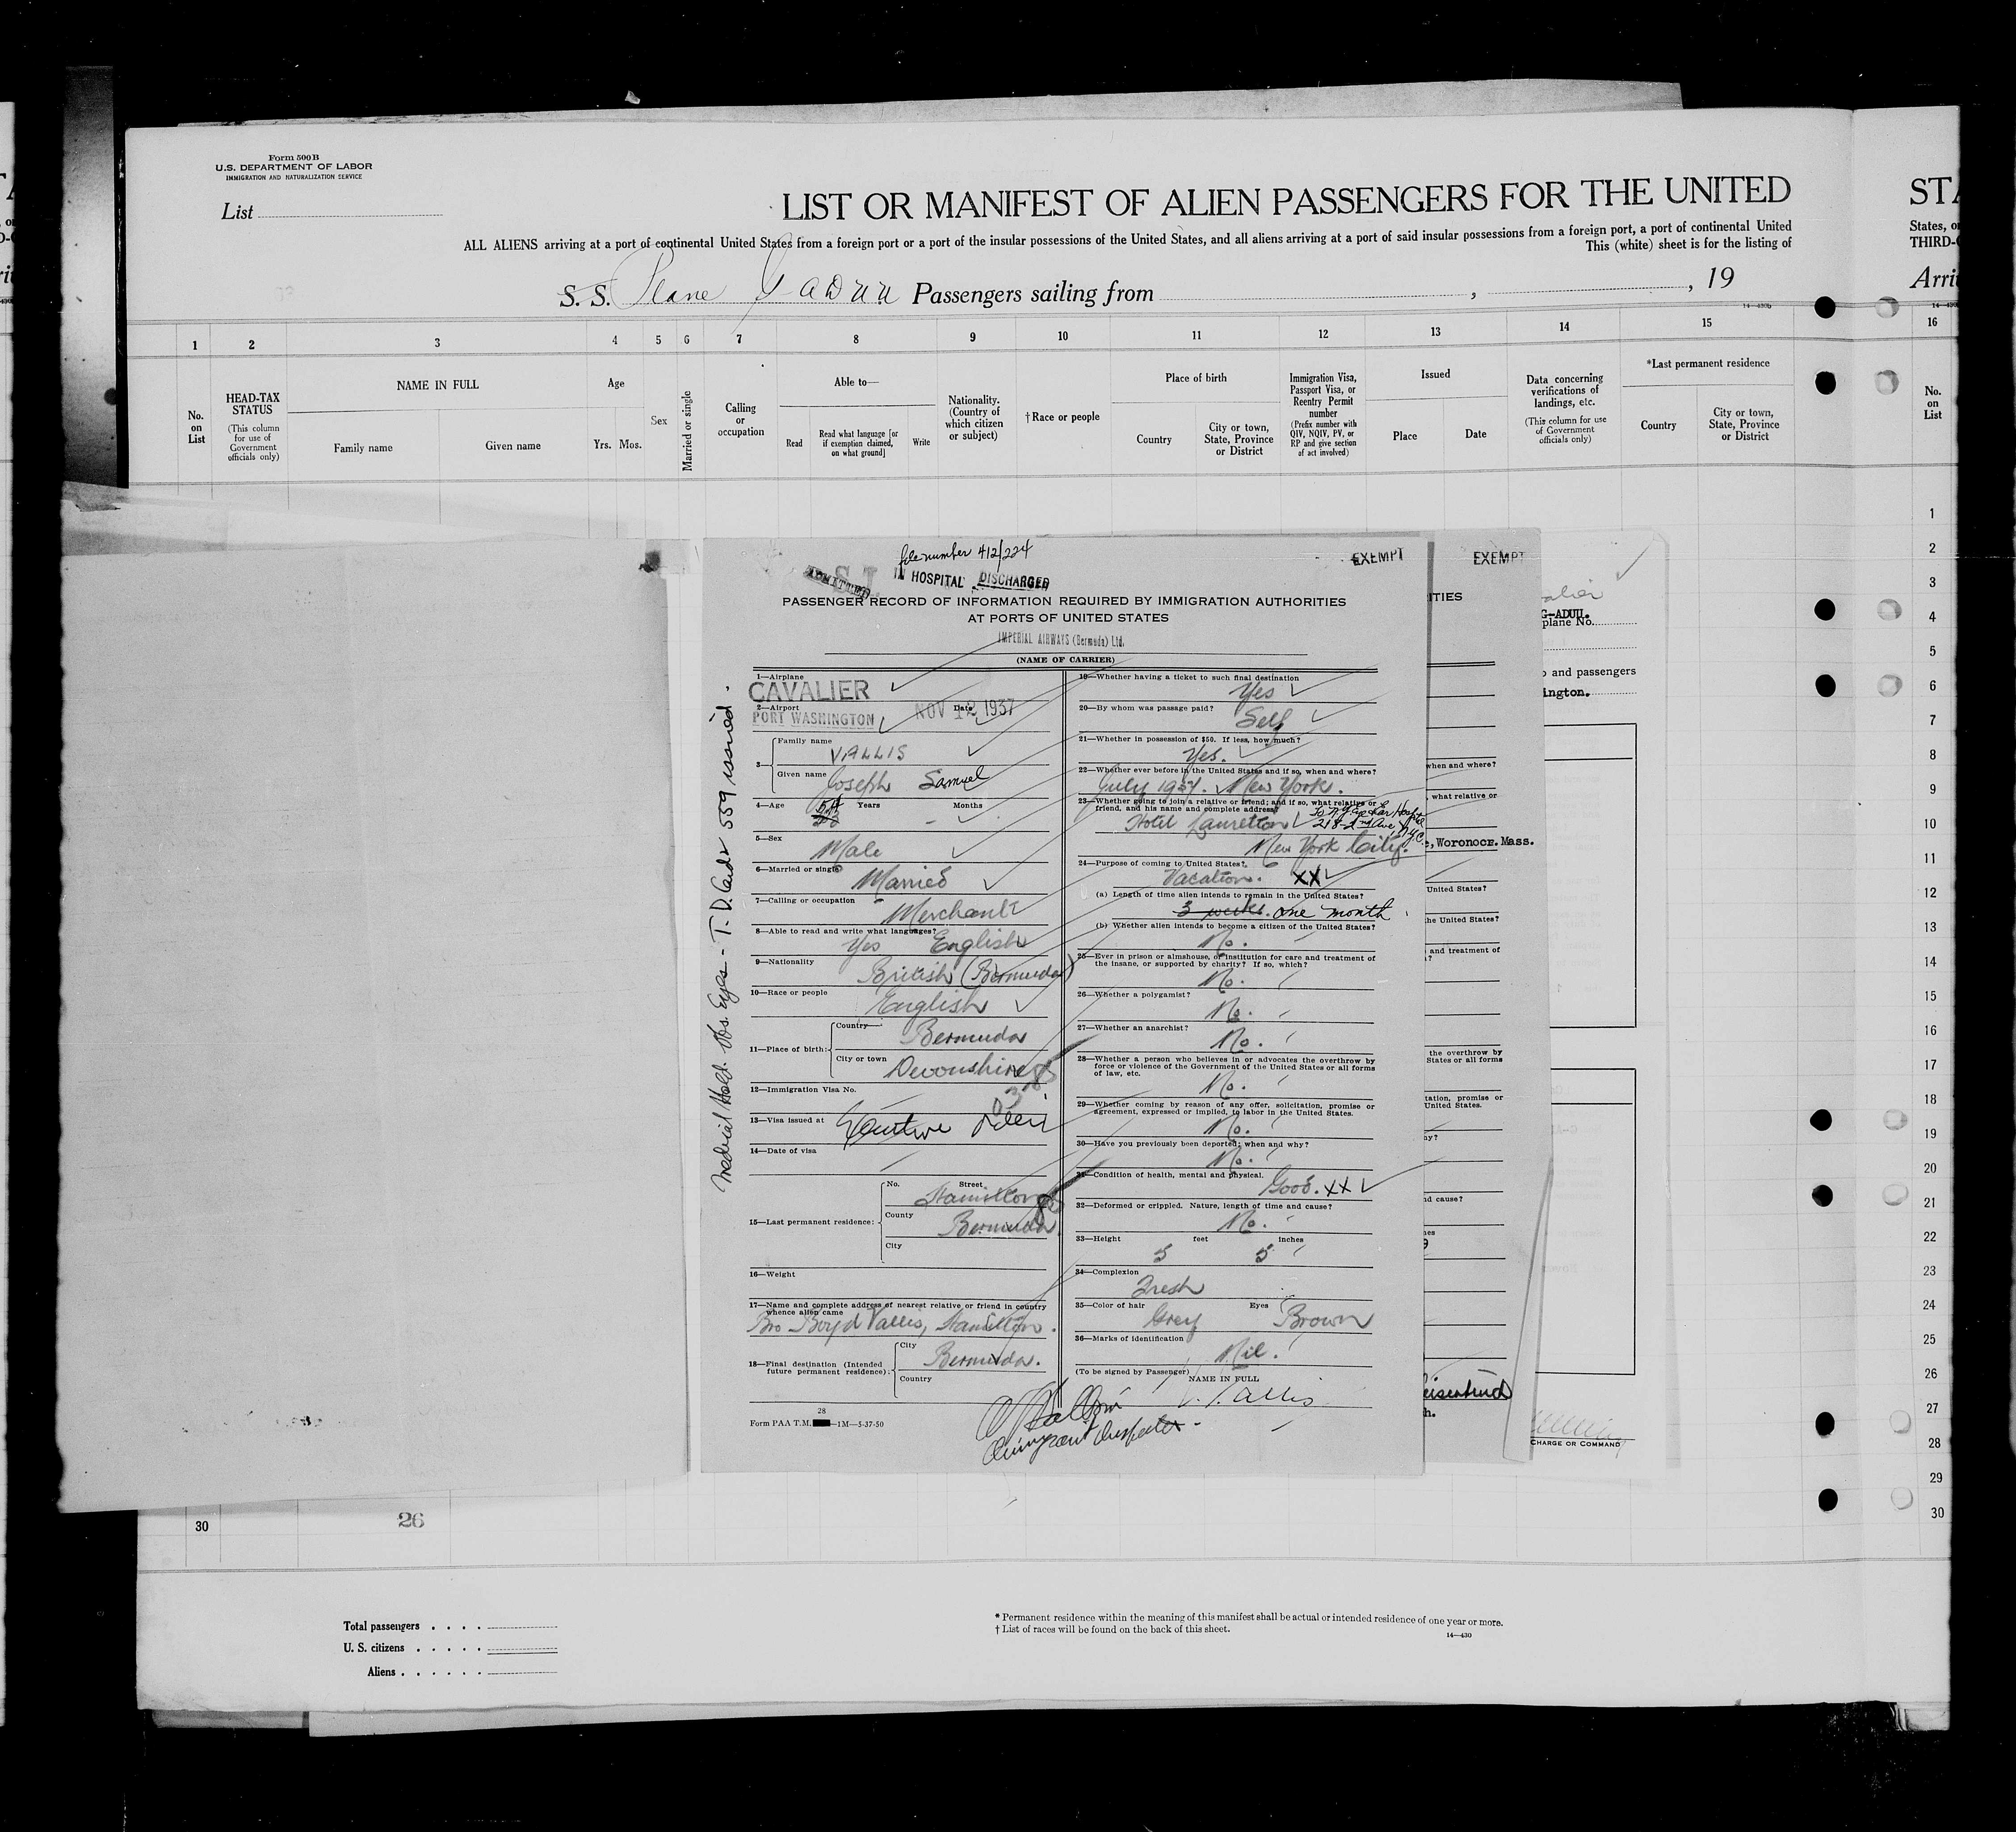 Form 500B
U.S. DEPARTMENT OF LABOR
IMMIGRATION AND NATURALIZATION SERVICE
List
LIST OR MANIFEST OF ALIEN PASSENGERS FOR THE UNITED
STA
ALL ALIENS arriving at a port of continental United States from a foreign port or a port of the insular possessions of the United States, and all aliens arriving at a port of said insular possessions from a foreign port, a port of continental United
This (white) sheet is for the listing of
States, o
THIRD-
S. S. Plane GADUU Passengers sailing from , , 19
Arri
1 2 3 4 5 6 7 8 9 10 11 12 13 14 15 16
No. on List
HEAD-TAX STATUS
(This column for use of Government officials only)
NAME IN FULL
Family name Given name
Age
Yrs. Mos.
Sex
Married or single
Calling or occupation
Able to—
Read
Read what language [or if exemption claimed, on what ground]
Write
Nationality. (Country of which citizen or subject)
†Race or people
Place of birth
Country
City or town, State, Province or District
Immigration Visa, Passport Visa, or Reentry Permit number
(Prefix number with QIV, NQIV, PV, or RP and give section of act involved)
Issued
Place Date
Data concerning verifications of landings, etc.
(This column for use of Government officials only)
*Last permanent residence
Country
City or town, State, Province or District
No. on List
file number 412/224
ADMITTED S.I. IN HOSPITAL DISCHARGED
EXEMPT
EXEMPT
PASSENGER RECORD OF INFORMATION REQUIRED BY IMMIGRATION AUTHORITIES
AT PORTS OF UNITED STATES
IMPERIAL AIRWAYS (Bermuda) Ltd.
(NAME OF CARRIER)
1—Airplane
CAVALIER
2—Airport Date
PORT WASHINGTON NOV 12 1937
3— Family name
VALLIS
Given name Joseph Samuel
4—Age 54 Years Months -
5—Sex
Male
6—Married or single
Married
7—Calling or occupation
Merchant
8—Able to read and write what languages?
Yes English
9—Nationality
British (Bermuda)
10—Race or people
English
11—Place of birth: Country
Bermuda
City or town
Devonshire
12—Immigration Visa No.
13—Visa issued at
14—Date of visa
15—Last permanent residence: No. Street
Hamilton
County
Bermuda
City
16—Weight
17—Name and complete address of nearest relative or friend in country whence alien came
Bro Boyd Vallis, Hamilton.
18—Final destination (Intended future permanent residence): City
Bermuda.
Country
28
Form PAA T.M. —1M—5-37-50
Medical Hold. Obs. Eyes - T.D. Card 559 issued.
19—Whether having a ticket to such final destination
Yes
20—By whom was passage paid?
Self
21—Whether in possession of $50. If less, how much?
Yes.
22—Whether ever before in the United States and if so, when and where?
July 1937. New York.
23—Whether going to join a relative or friend; and if so, what relative or friend, and his name and complete address
Hotel
218-2nd Ave NYC
New York City.
24—Purpose of coming to United States?
Vacation. XX
(a) Length of time alien intends to remain in the United States?
3 weeks. one month
(b) Whether alien intends to become a citizen of the United States?
No.
25—Ever in prison or almshouse, or institution for care and treatment of the insane, or supported by charity? If so, which?
No.
26—Whether a polygamist?
No.
27—Whether an anarchist?
No.
28—Whether a person who believes in or advocates the overthrow by force or violence of the Government of the United States or all forms of law, etc.
No.
29—Whether coming by reason of any offer, solicitation, promise or agreement, expressed or implied, to labor in the United States.
No.
30—Have you previously been deported; when and why?
No.
31—Condition of health, mental and physical.
Good. XX
32—Deformed or crippled. Nature, length of time and cause?
No.
33—Height feet inches
5 5
34—Complexion
Fresh
35—Color of hair Eyes
Grey Brown
36—Marks of identification
Nil.
(To be signed by Passenger)
NAME IN FULL
Vallis
Immigrant Inspector
ITIES
when and where?
what relative or
Woronoco, Mass.
United States?
the United States?
and treatment of
the overthrow by
States or all forms
tation, promise or
United States.
ny?
nd cause?
hes
G-ADUU.
plane No.
and passengers
ington.
CHARGE OR COMMAND
1
2
3
4
5
6
7
8
9
10
11
12
13
14
15
16
17
18
19
20
21
22
23
24
25
26
27
28
29
30
30 26
Total passengers
U. S. citizens
Aliens
* Permanent residence within the meaning of this manifest shall be actual or intended residence of one year or more.
† List of races will be found on the back of this sheet.
14—430